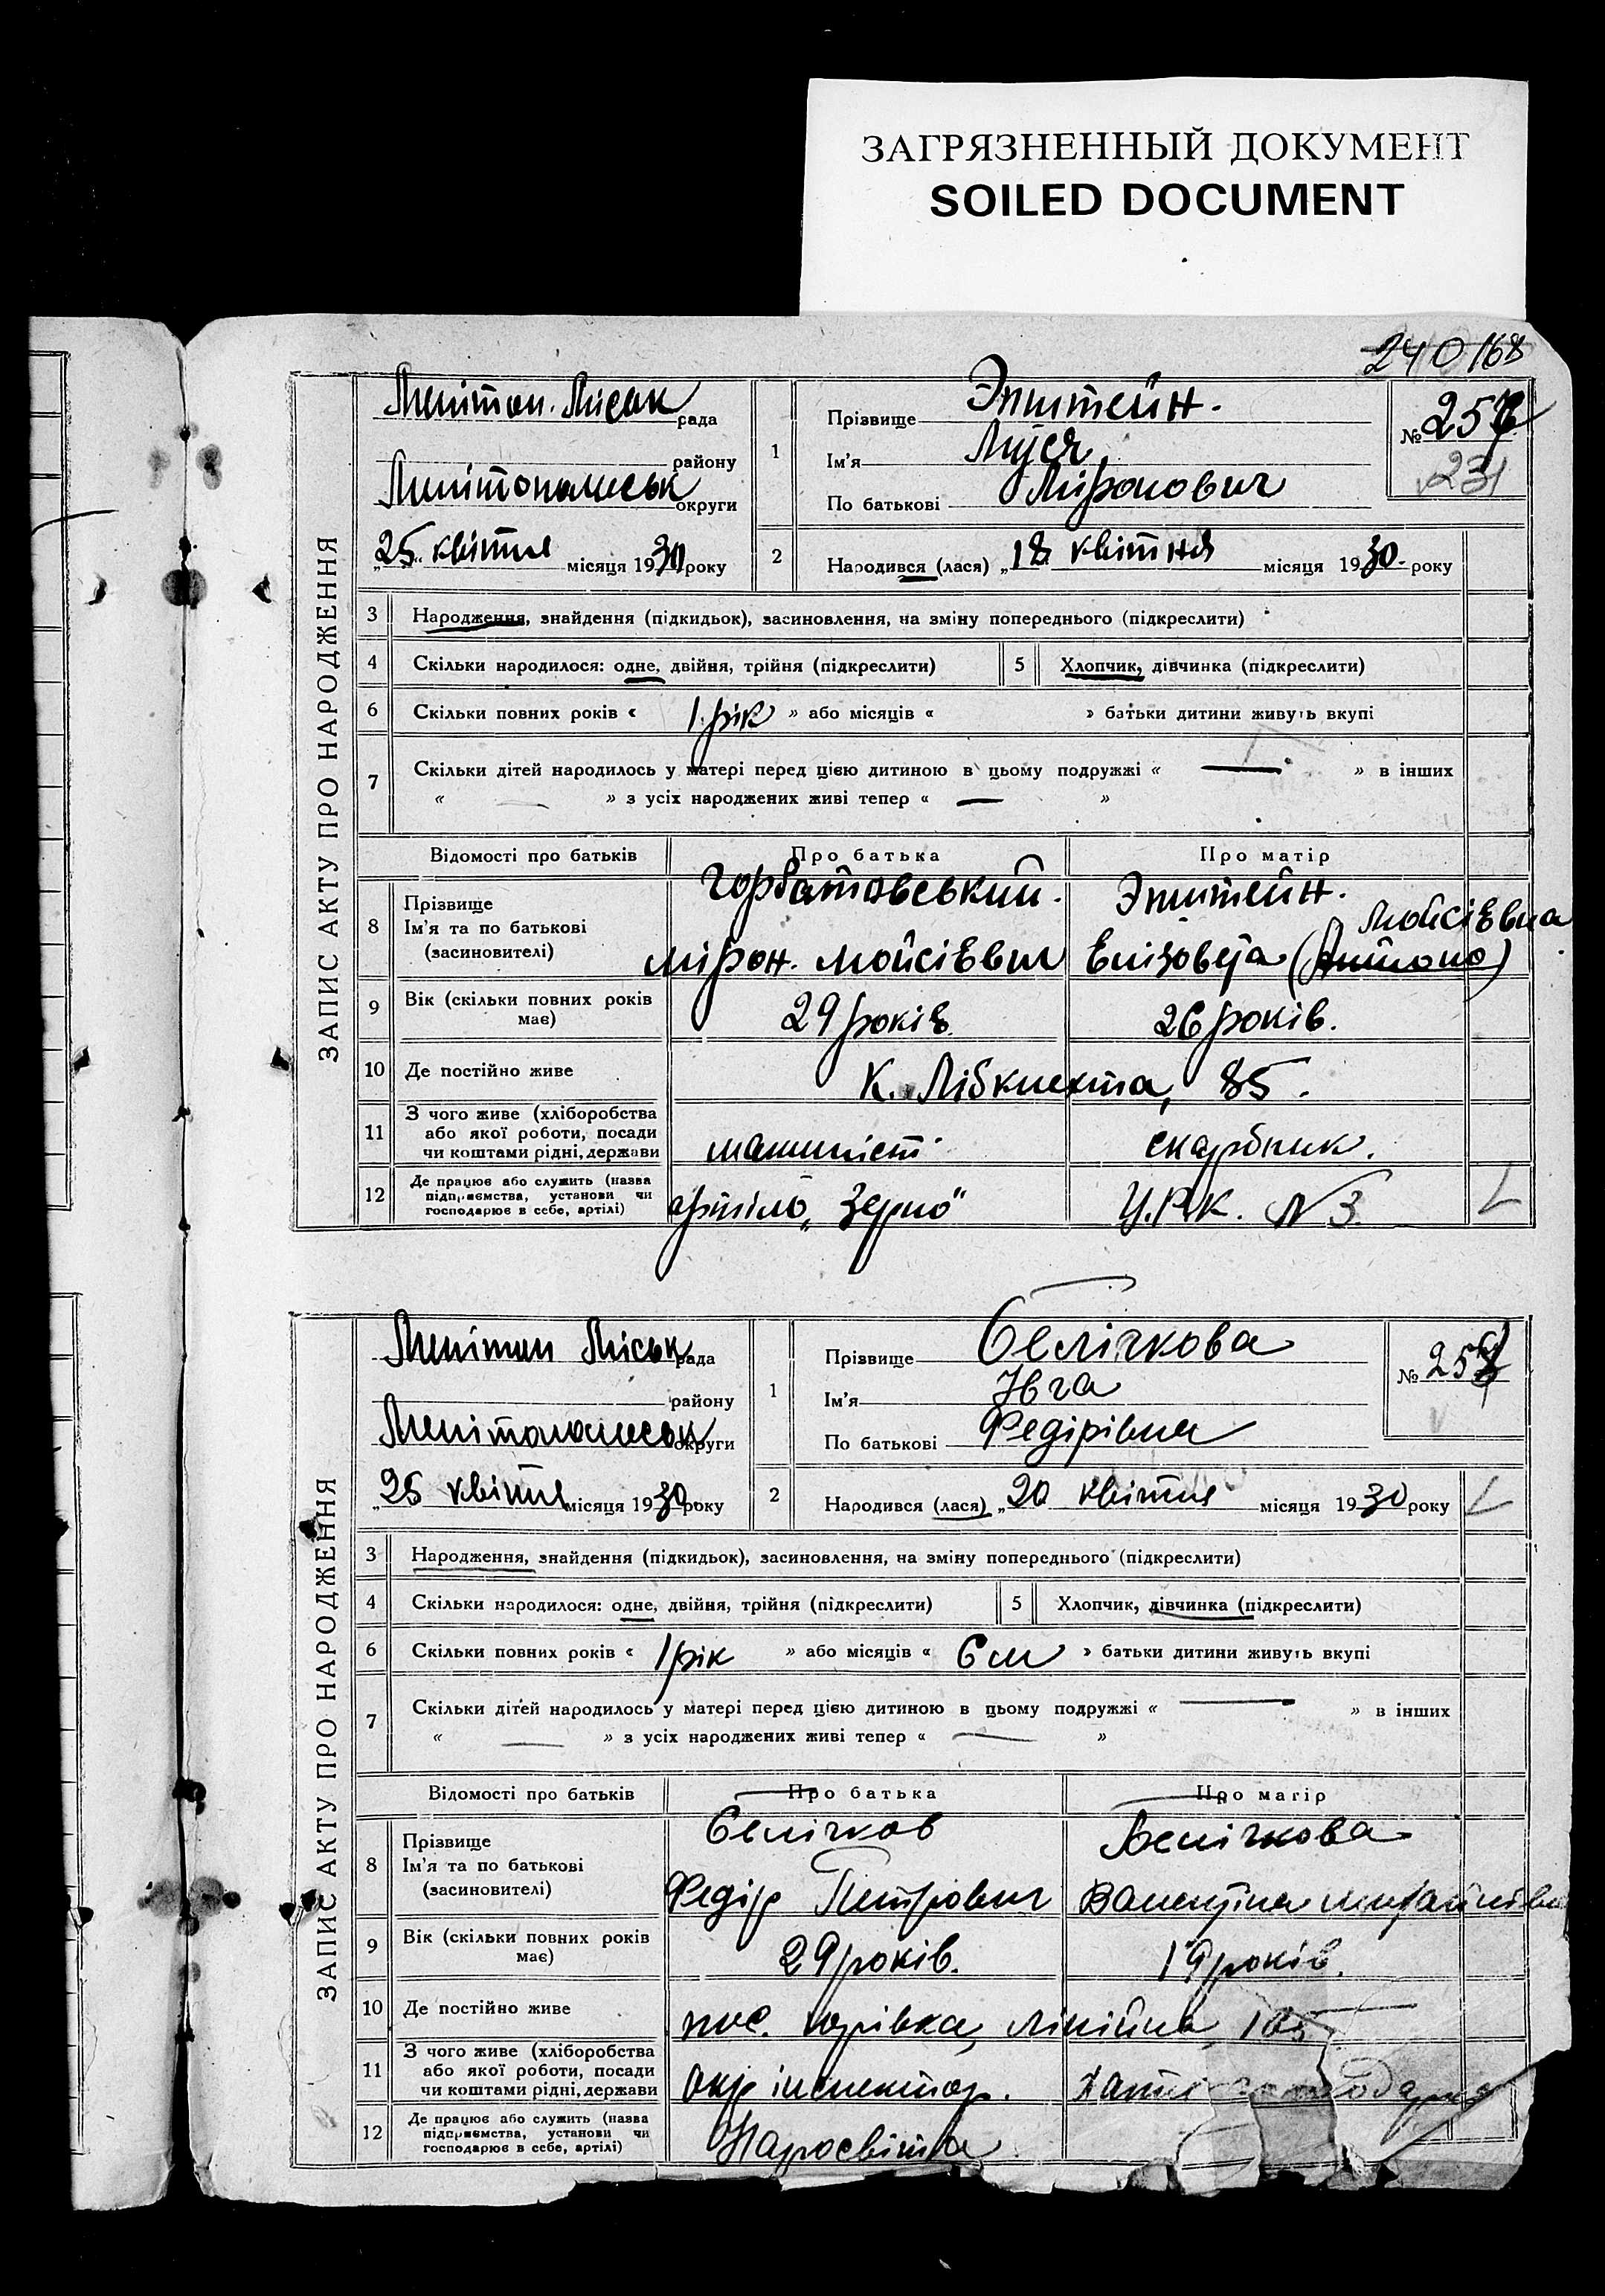 ЗАГРЯЗНЕННЫЙ ДОКУМЕНТ
SOILED DOCUMENT
240 168
ЗАПИС АКТУ ПРО НАРОДЖЕННЯ
Мелітоп. Міськ рада
району
Мелітопільськ округи
„25“ квітня місяця 1930 року
1 Прізвище Эпштейн.
Ім'я Муся
По батькові Міронович
№ 257
231
2 Народився (лася) „18 квітня місяця 1930. року
3 Народження, знайдення (підкидьок), засиновлення, на зміну попереднього (підкреслити)
4 Скільки народилося: одне, двійня, трійня (підкреслити) 5 Хлопчик, дівчинка (підкреслити)
6 Скільки повних років « 1 рік » або місяців « » батьки дитини живуть вкупі
7 Скільки дітей народилось у матері перед цією дитиною в цьому подружжі « — » в інших
« — » з усіх народжених живі тепер « — »
Відомості про батьків Про батька Про матір
8 Прізвище Ім'я та по батькові (засновителі)
Горбатовський. Эпштейн.
Мірон. Мойсієвич Елізовета (Антоно) Мойсієвна
9 Вік (скільки повних років має) 29 років. 26 років.
10 Де постійно живе К. Лібкнехта, 85.
11 З чого живе (хліборобства або якої роботи, посади чи коштами рідні, держави машиніст скарбник.
12 Де працює або служить (назва підприємства, установи чи господарює в себе, артілі) Артіль „Зерно“ Ц.Р.К. N 3
ЗАПИС АКТУ ПРО НАРОДЖЕННЯ
Мелітоп Міськ рада
району
Мелітопільськ округи
„25 квітня місяця 1930. року
1 Прізвище Белічкова
Ім'я Ївга
По батькові Федірівна
№ 25
2 Народився (лася) „20 квітня місяця 1930 року
3 Народження, знайдення (підкидьок), засиновлення, на зміну попереднього (підкреслити)
4 Скільки народилося: одне, двійня, трійня (підкреслити) 5 Хлопчик, дівчинка (підкреслити)
6 Скільки повних років « 1 рік » або місяців « 6 м » батьки дитини живуть вкупі
7 Скільки дітей народилось у матері перед цією дитиною в цьому подружжі « — » в інших
« — » з усіх народжених живі тепер « — »
Відомості про батьків Про батька Про матір
8 Прізвище Ім'я та по батькові (засиновителі)
Белічков Белічкова
Федір Петрович Валентіна Михайлівна
9 Вік (скільки повних років має) 29 років. 19 років.
10 Де постійно живе пос. Юрівка, лінійна
11 З чого живе (хліборобства або якої роботи, посади чи коштами рідні, держави окр інспектор. Хатн
12 Де працює або служить (назва підприємства, установи чи господарює в себе, артілі) Наросвіта